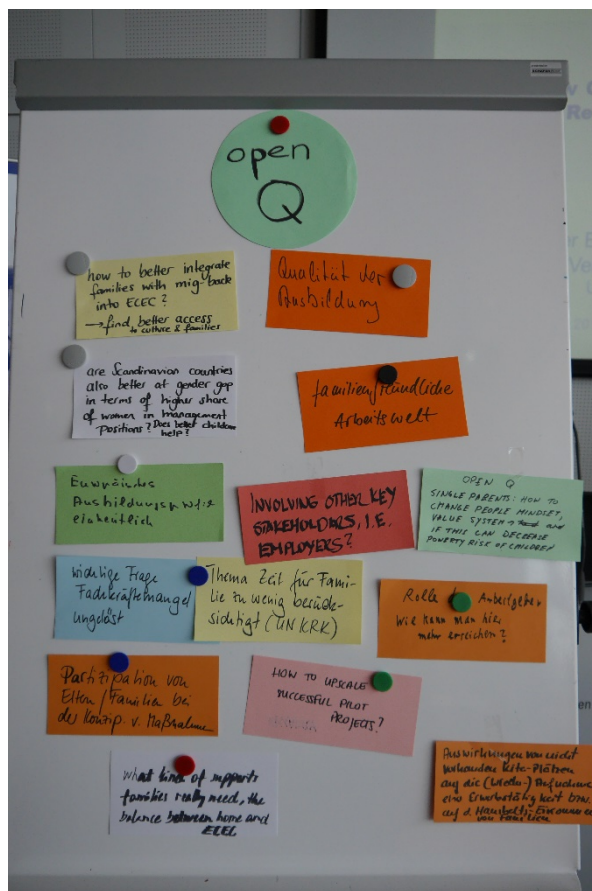 open
Q
how to better integrate
families with mig-back
into ECEC?
→ find better access
to culture & families
Qualität der
Ausbildung
are Scandinavian countries
also better at gender gap
in terms of higher share
of women in management
Positions? Does better childcare
help?
familienfreundliche
Arbeitswelt
Europäisches
INVOLVING OTHER KEY
STAKEHOLDERS, I.E.
EMPLOYERS?
OPEN Q
SINGLE PARENTS: HOW TO
CHANGE PEOPLE MINDSET,
VALUE SYSTEM
IF THIS CAN DECREASE
POVERTY RISK OF CHILDREN
wichtige Frage
Fachkräftemangel
ungelöst
Thema Zeit für Fami-
lie zu wenig berück-
sichtigt (UN KRK)
Rolle Arbeitgeber
Wie kann man hier
mehr erreichen?
Partizipation von
Eltern / Familien bei
der Konzip. v. Maßnahmen
HOW TO UPSCALE
SUCCESSFUL PILOT
PROJECTS?
what kines of supports
families really need, the
balance between home and
ECEC
Auswirkungen von nicht
vorhanden Kita-Plätzen
auf die (Wieder-) Aufnahme
eine Erwerbstätigkeit bzw.
auf d. Haushalts-Einkommen
von Familien